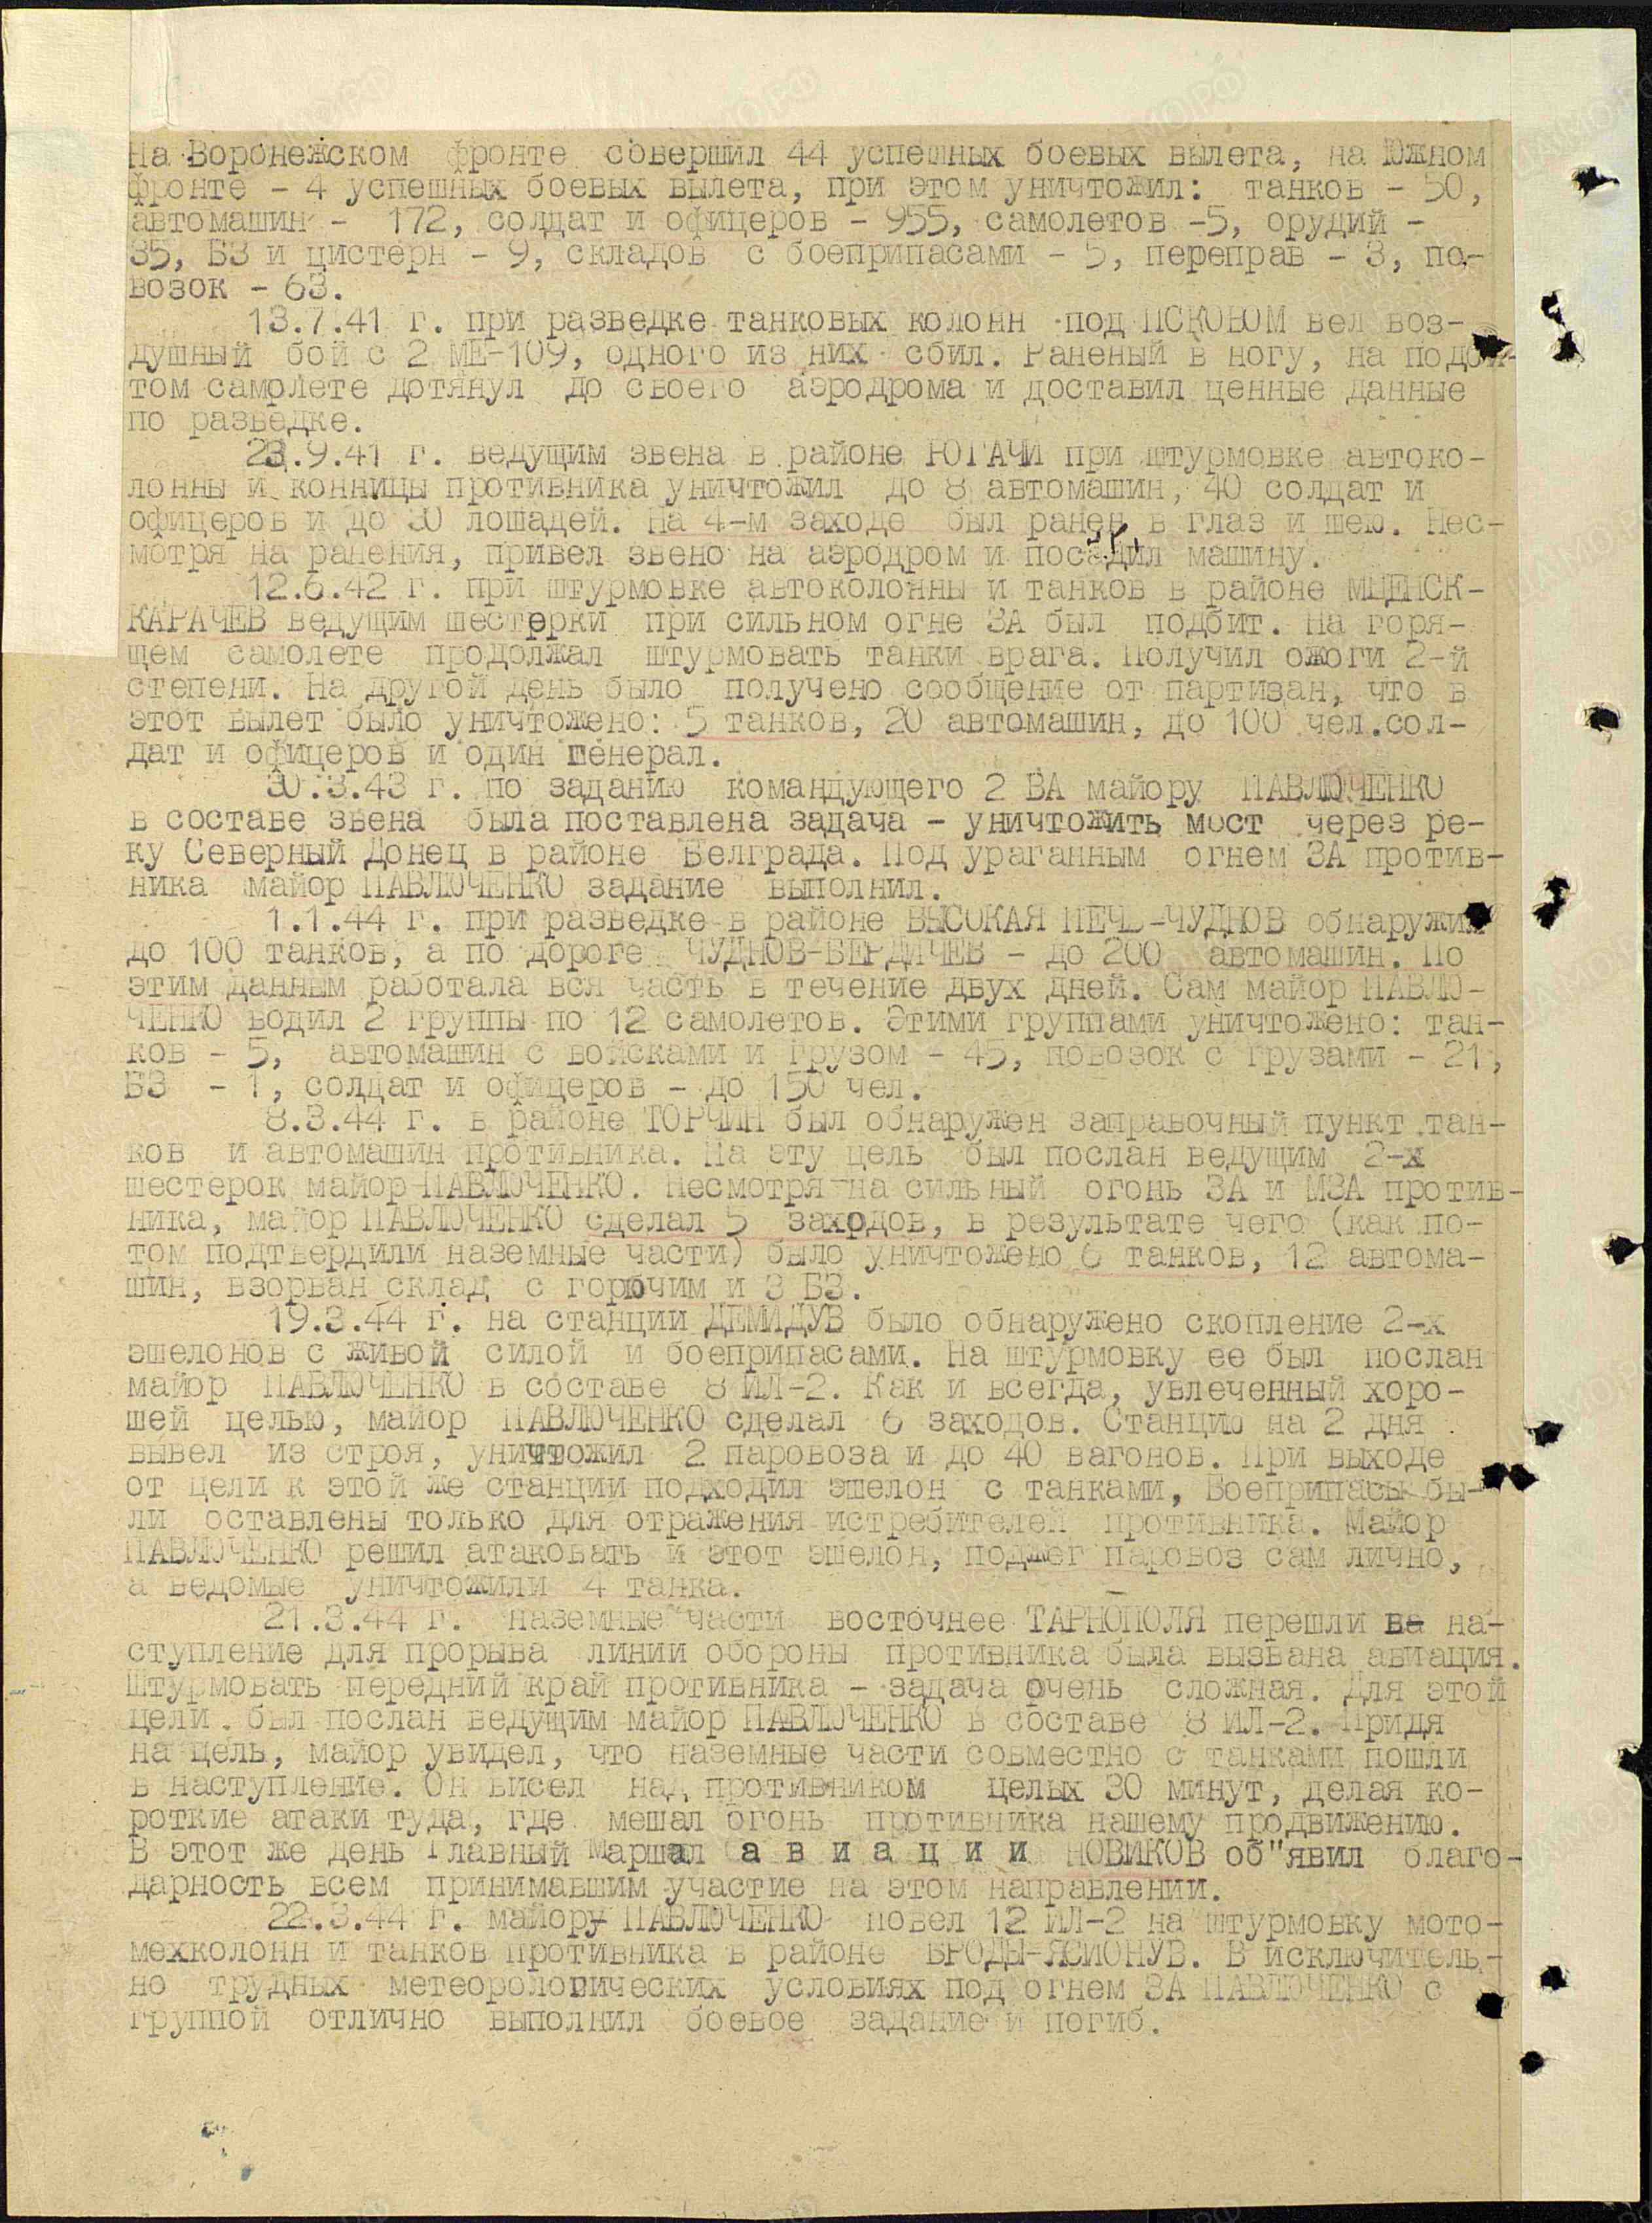 На Воронежском фронте совершил 44 успешных боевых вылета, на Южном
фронте - 4 успешных боевых вылета, при этом уничтожил: танков - 50,
автомашин - 172, солдат и офицеров - 955, самолетов -5, орудий -
35, БЗ и цистерн - 9, складов с боеприпасами - 5, переправ - 3, по-
возок - 63.
13.7.41 г. при разведке танковых колонн под ПСКОВОМ вел воз-
душный бой с 2 МЕ-109, одного из них сбил. Раненый в ногу, на подби-
том самолете дотянул до своего аэродрома и доставил ценные данные
по разведке.
23.9.41 г. ведущим звена в районе ЮГАЧИ при штурмовке автоко-
лонны и конницы противника уничтожил до 8 автомашин, 40 солдат и
офицеров и до 30 лошадей. На 4-м заходе был ранен в глаз и шею. Нес-
мотря на ранения, привел звено на аэродром и посадил машину.
12.6.42 г. при штурмовке автоколонны и танков в районе МЦЕНСК-
КАРАЧЕВ ведущим шестерки при сильном огне ЗА был подбит. На горя-
щем самолете продолжал штурмовать танки врага. Получил ожоги 2-й
степени. На другой день было получено сообщение от партизан, что в
этот вылет было уничтожено: 5 танков, 20 автомашин, до 100 чел.сол-
дат и офицеров и один генерал.
30.3.43 г. по заданию командующего 2 ВА майору ПАВЛЮЧЕНКО
в составе звена была поставлена задача - уничтожить мост через ре-
ку Северный Донец в районе Белграда. Под ураганным огнем ЗА против-
ника майор ПАВЛЮЧЕНКО задание выполнил.
1.1.44 г. при разведке в районе ВЫСОКАЯ ПЕЧЬ-ЧУДНОВ обнаружил
до 100 танков, а по дороге ЧУДНОВ-БЕРДИЧЕВ - до 200 автомашин. По
этим данным работала вся часть в течение двух дней. Сам майор ПАВЛЮ-
ЧЕНКО водил 2 группы по 12 самолетов. Этими группами уничтожено: тан-
ков - 5, автомашин с войсками и грузом - 45, повозок с грузами - 21,
БЗ - 1, солдат и офицеров - до 150 чел.
8.3.44 г. в районе ТОРЧИН был обнаружен заправочный пункт тан-
ков и автомашин противника. На эту цель был послан ведущим 2-х
шестерок майор ПАВЛЮЧЕНКО. Несмотря на сильный огонь ЗА и МЗА против-
ника, майор ПАВЛЮЧЕНКО сделал 5 заходов, в результате чего (как по-
том подтвердили наземные части) было уничтожено 6 танков, 12 автома-
шин, взорван склад с горючим и 3 БЗ.
19.3.44 г. на станции ДЕМИДУВ было обнаружено скопление 2-х
эшелонов с живой силой и боеприпасами. На штурмовку ее был послан
майор ПАВЛЮЧЕНКО в составе 8 ИЛ-2. Как и всегда, увлеченный хоро-
шей целью, майор ПАВЛЮЧЕНКО сделал 6 заходов. Станцию на 2 дня
вывел из строя, уничтожил 2 паровоза и до 40 вагонов. При выходе
от цели к этой же станции подходил эшелон с танками, Боеприпасы бы-
ли оставлены только для отражения истребителей противника. Майор
ПАВЛЮЧЕНКО решил атаковать и этот эшелон, поджег паровоз сам лично,
а ведомые уничтожили 4 танка.
21.3.44 г. наземные части восточнее ТАРНОПОЛЯ перешли в на-
ступление для прорыва линии обороны противника была вызвана авиация.
Штурмовать передний край противника - задача очень сложная. Для этой
цели был послан ведущим майор ПАВЛЮЧЕНКО в составе 8 ИЛ-2. Придя
на цель, майор увидел, что наземные части совместно с танками пошли
в наступление. Он висел над противником целых 30 минут, делая ко-
роткие атаки туда, где мешал огонь противника нашему продвижению.
В этот же день Главный Маршал а в и а ц и и НОВИКОВ об"явил благо-
дарность всем принимавшим участие на этом направлении.
22.3.44 г. майору ПАВЛЮЧЕНКО повел 12 ИЛ-2 на штурмовку мото-
мехколонн и танков противника в районе БРОДЫ-ЯСИОНУВ. В исключитель-
но трудных метеорологических условиях под огнем ЗА ПАВЛЮЧЕНКО с
группой отлично выполнил боевое задание и погиб.